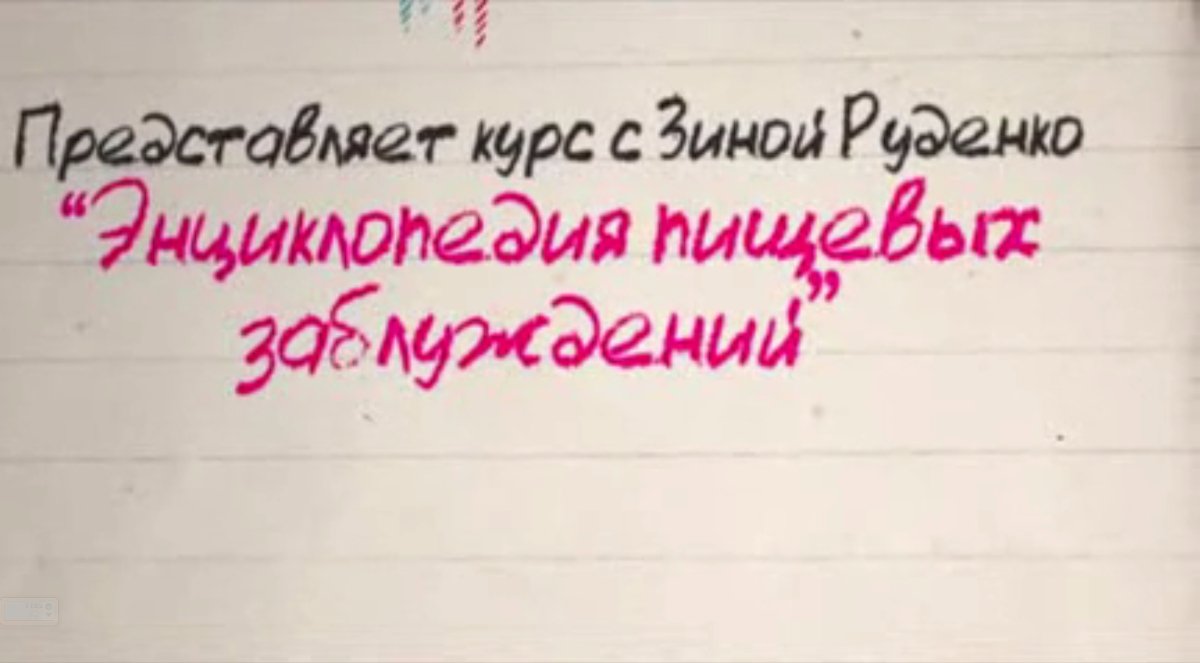 Представляет курс с Зиной Руденко
“Энциклопедия пищевых
заблуждений”